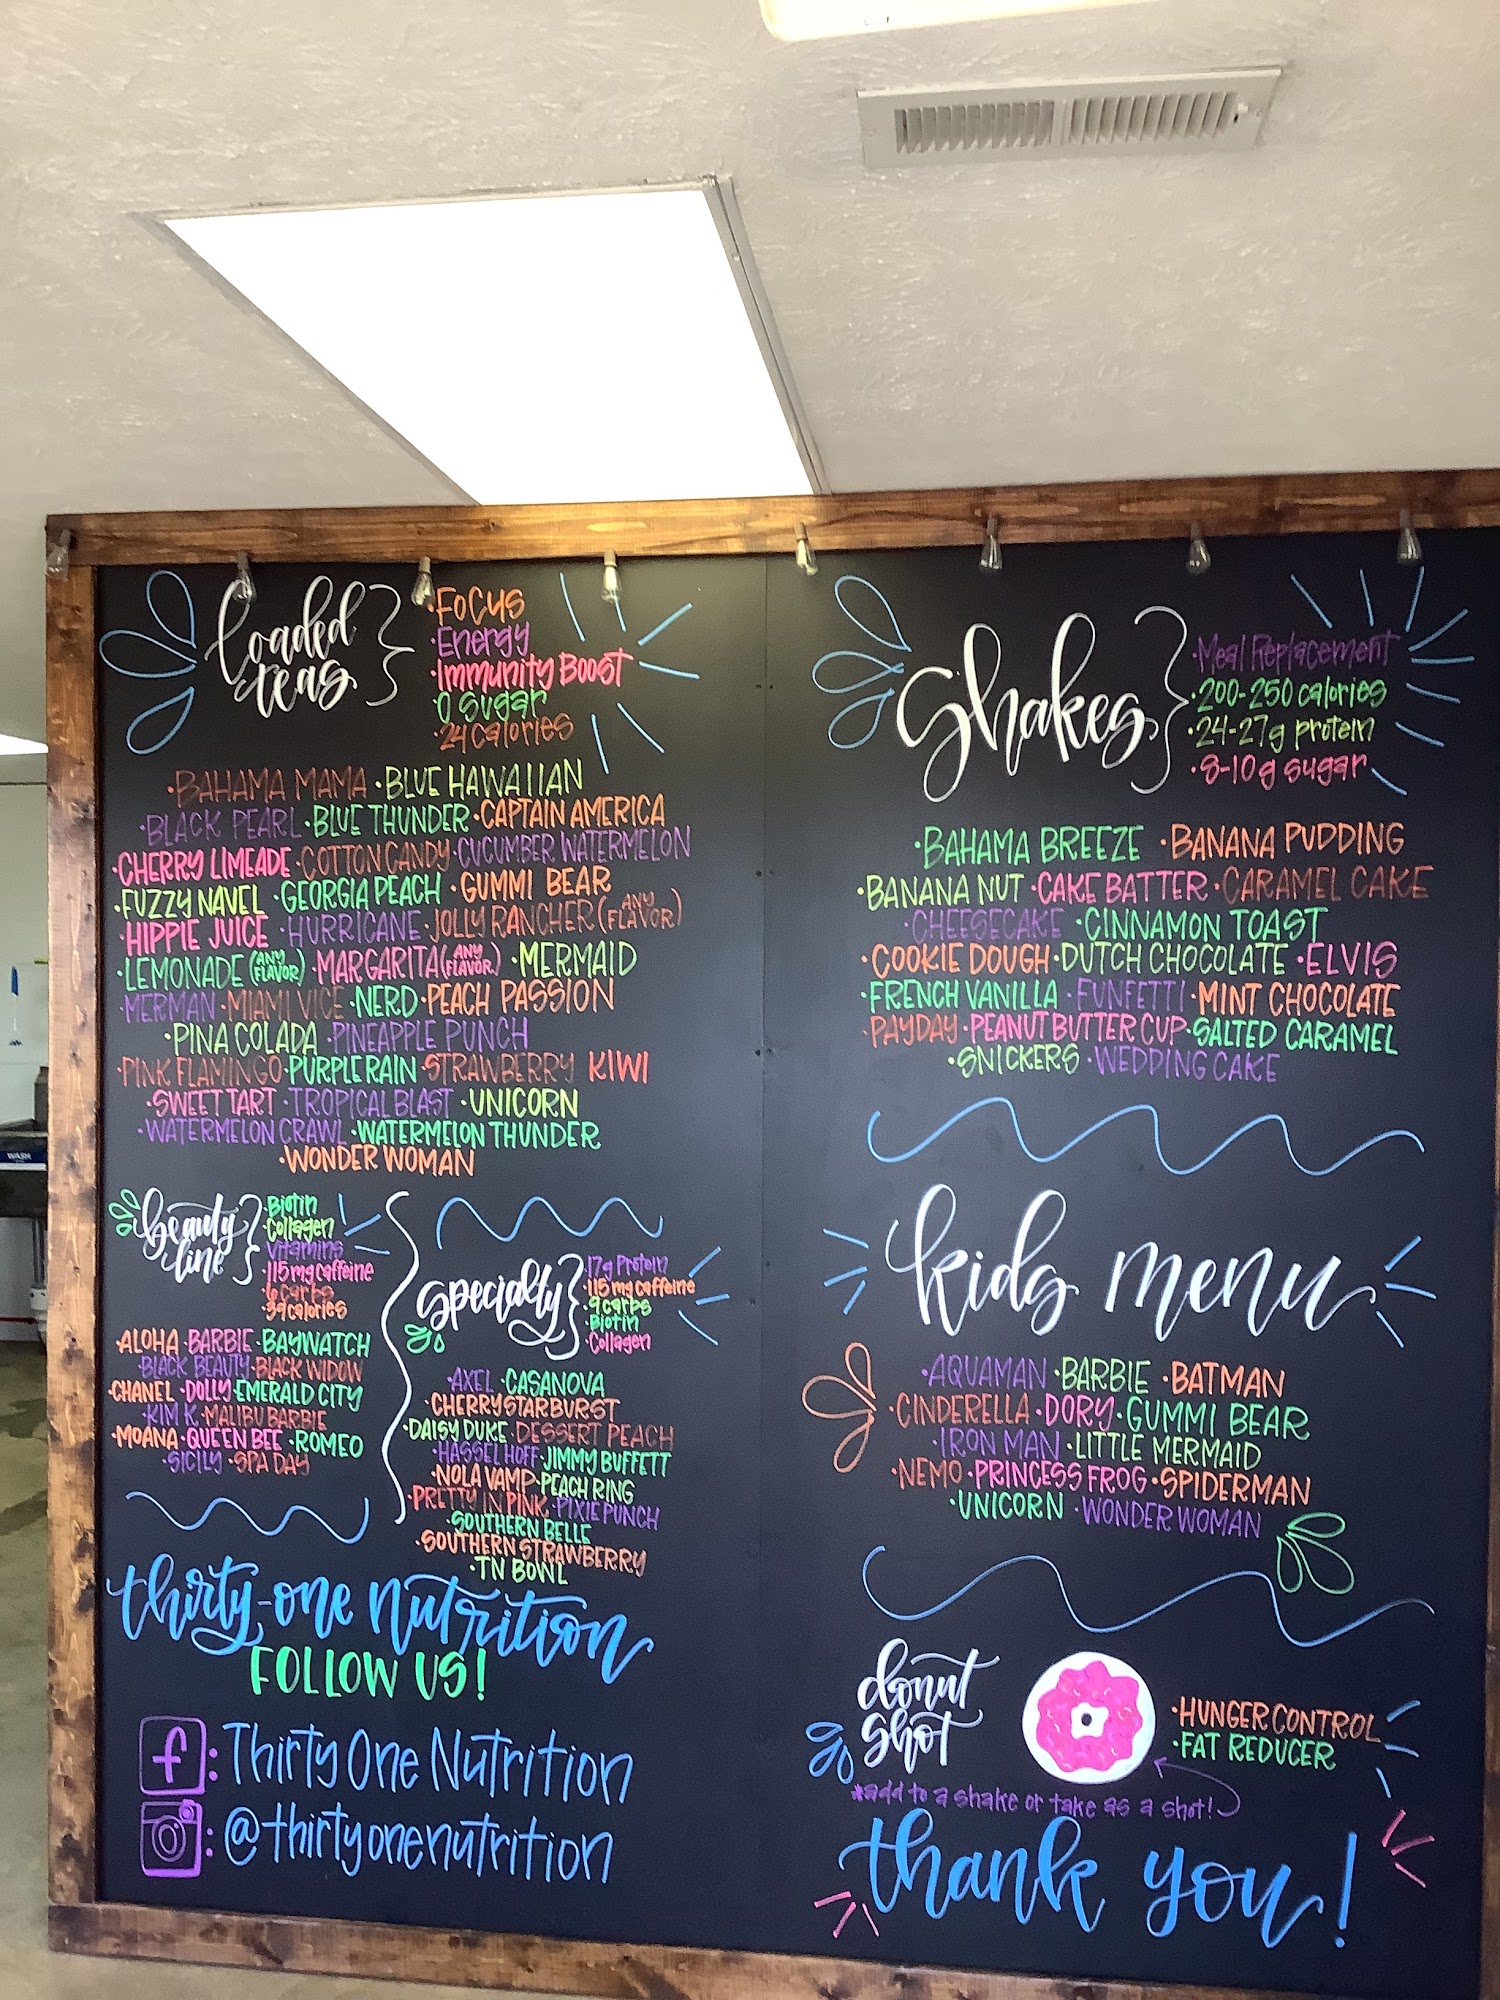 loaded
teas
·Focus
·Energy
·Immunity Boost
·0 sugar
·24 calories
·BAHAMA MAMA ·BLUE HAWAIIAN
·BLACK PEARL ·BLUE THUNDER ·CAPTAIN AMERICA
·CHERRY LIMEADE ·COTTON CANDY ·CUCUMBER WATERMELON
·FUZZY NAVEL ·GEORGIA PEACH ·GUMMI BEAR
·HIPPIE JUICE ·HURRICANE ·JOLLY RANCHER (ANY FLAVOR)
·LEMONADE (ANY FLAVOR) ·MARGARITA (ANY FLAVOR) ·MERMAID
·MERMAN ·MIAMI VICE ·NERD ·PEACH PASSION
·PINA COLADA ·PINEAPPLE PUNCH
·PINK FLAMINGO ·PURPLE RAIN ·STRAWBERRY KIWI
·SWEETTART ·TROPICAL BLAST ·UNICORN
·WATERMELON CRAWL ·WATERMELON THUNDER
·WONDER WOMAN
beauty
line
·Biotin
·Collagen
·Vitamins
·115 mg caffeine
·6 carbs
·39 calories
·ALOHA ·BARBIE ·BAYWATCH
·BLACK BEAUTY ·BLACK WIDOW
·CHANEL ·DOLLY ·EMERALD CITY
·KIM K ·MALIBU BARBIE
·MOANA ·QUEEN BEE ·ROMEO
·SICILY ·SPA DAY
specialty
·17g Protein
·115 mg caffeine
·9 carbs
·Biotin
·Collagen
·AXEL ·CASANOVA
·CHERRY STARBURST
·DAISY DUKE ·DESSERT PEACH
·HASSELHOFF ·JIMMY BUFFETT
·NOLA VAMP ·PEACH RING
·PRETTY IN PINK ·PIXIE PUNCH
·SOUTHERN BELLE
·SOUTHERN STRAWBERRY
·TN BOWL
thirty-one nutrition
FOLLOW US!
f: Thirty One Nutrition
: @thirtyonenutrition
Shakes
·Meal Replacement
·200-250 calories
·24-27g protein
·8-10g sugar
·BAHAMA BREEZE ·BANANA PUDDING
·BANANA NUT ·CAKE BATTER ·CARAMEL CAKE
·CHEESECAKE ·CINNAMON TOAST
·COOKIE DOUGH ·DUTCH CHOCOLATE ·ELVIS
·FRENCH VANILLA ·FUNFETTI ·MINT CHOCOLATE
·PAYDAY ·PEANUT BUTTER CUP ·SALTED CARAMEL
·SNICKERS ·WEDDING CAKE
kids menu
·AQUAMAN ·BARBIE ·BATMAN
·CINDERELLA ·DORY ·GUMMI BEAR
·IRON MAN ·LITTLE MERMAID
·NEMO ·PRINCESS FROG ·SPIDERMAN
·UNICORN ·WONDER WOMAN
donut
shot
·HUNGER CONTROL
·FAT REDUCER
*add to a shake or take as a shot!
thank you!
WASH